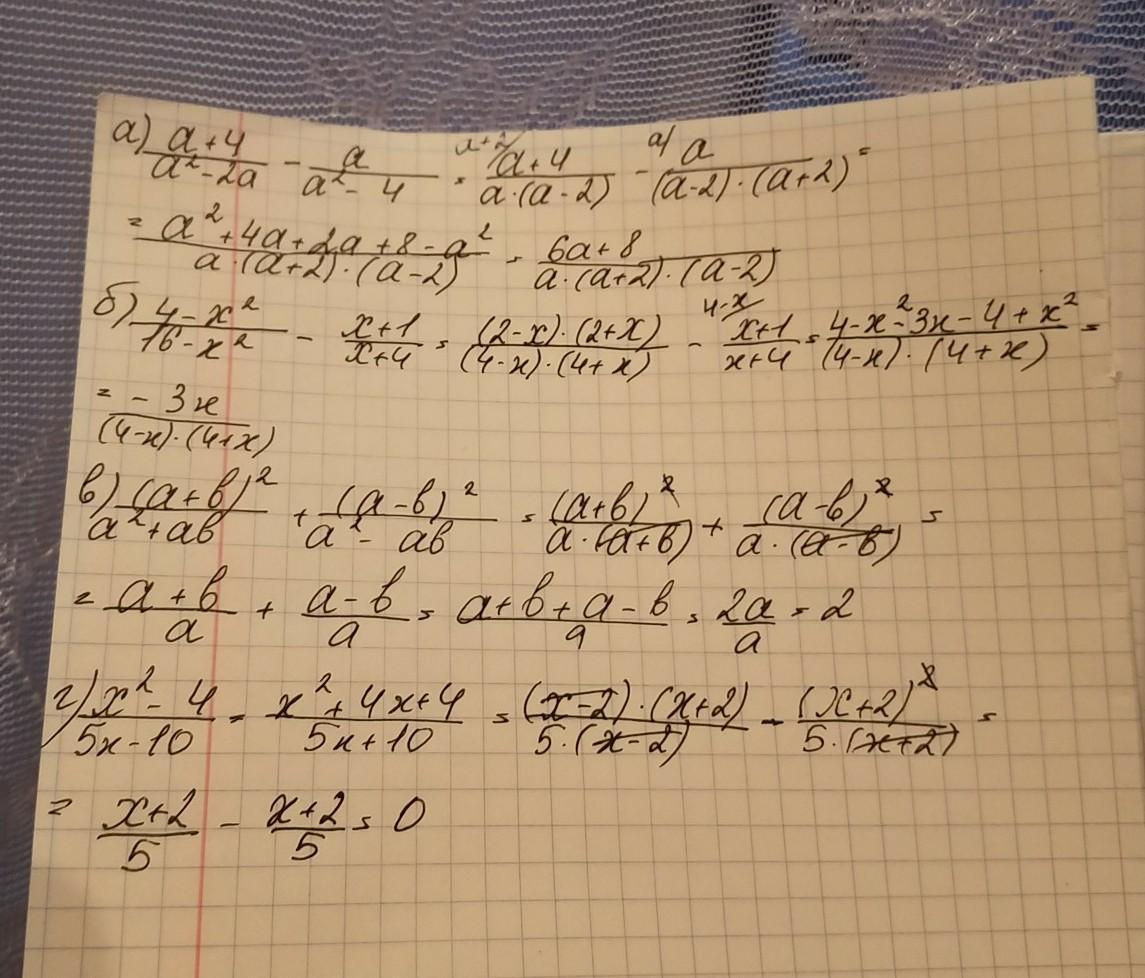 а) (a+4)/(a²-2a) - a/(a²-4) = ᵃ⁺²⁄ (a+4)/(a·(a-2)) - ᵃ⁄ a/((a-2)·(a+2)) =
= (a²+4a+2a+8-a²)/(a·(a+2)·(a-2)) = (6a+8)/(a·(a+2)·(a-2))
б) (4-x²)/(16-x²) - (x+1)/(x+4) = ((2-x)·(2+x))/((4-x)·(4+x)) - ⁴⁻ˣ⁄ (x+1)/(x+4) = (4-x²-3x-4+x²)/((4-x)·(4+x)) =
= (-3x)/((4-x)·(4+x))
в) (a+b)²/(a²+ab) + (a-b)²/(a²-ab) = (a+b)²/(a·(a+b)) + (a-b)²/(a·(a-b)) =
= (a+b)/a + (a-b)/a = (a+b+a-b)/a = 2a/a = 2
г) (x²-4)/(5x-10) - (x²+4x+4)/(5x+10) = ((x-2)·(x+2))/(5·(x-2)) - (x+2)²/(5·(x+2)) =
= (x+2)/5 - (x+2)/5 = 0